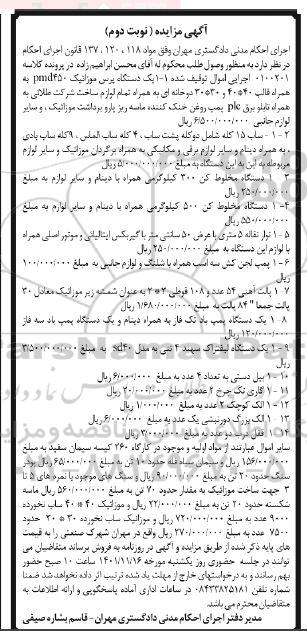 آگهی مزایده ( نوبت دوم )
اجرای احکام مدنی دادگستری مهران وفق مواد ۱۱۸ ، ۱۲۰ ، ۱۳۷ قانون اجرای احکام
در نظر دارد به منظور وصول طلب محکوم له آقای محسن ابراهیم زاده در پرونده کلاسه
۰۱۰۰۲۰۱ اجرایی اموال توقیف شده ۱-۱ یک دستگاه پرس موزائیک pmd۴۵۰ به
همراه قالب ۴۰*۴۰ و ۳۰*۳۰ دوخانه ای به همراه تمام لوازم ساخت شرکت طلائی به
همراه تابلو برق plc پمپ روغن خنک کننده ماسه ریز پارو برداشت موزائیک ، و سایر
لوازم جانبی ۶/۵۰۰/۰۰۰/۰۰۰ ریال
۲ - ۱ - ساب ۱۵ کله شامل دوکله پشت ساب ، ۴ کله ساب الماس ، ۹کله ساب بادی
، به همراه دینام و سایر لوازم برقی و مکانیکی به همراه برگردان موزائیک و سایر لوازم
مربوطه به این به این دستگاه به مبلغ ۵/۰۰۰/۰۰۰/۰۰۰ ریال
۳ - ۱ دستگاه مخلوط کن ۳۰۰ کیلوگرمی همراه با دینام و سایر لوازم به مبلغ
۲۵۰/۰۰۰/۰۰۰ ریال
۴- ۱ دستگاه مخلوط کن ۵۰۰ کیلوگرمی همراه با دینام و سایر لوازم به مبلغ
۵۵۰/۰۰۰/۰۰۰ ریال
۵ - ۱ نوار نقاله ۵ متری با عرض ۵۰ سانتی متر با گیربکس ایتالیائی و موتور اصلی همراه
با لوازم این دستگاه به مبلغ ۲۵۰/۰۰۰/۰۰۰ ریال
۶ - ۱ پمپ لجن کش سه اسب همراه با شلنگ و لوازم جانبی به مبلغ ۱۰۰/۰۰۰/۰۰۰
ریال
۷ - ۱ پالت آهنی ۵۴ عدد و ۱۰۸ قوطی ۳*۲ به عنوان شمشه زیر موزائیک معادل ۳۰
پالت جمعا ۸۴ پالت به مبلغ ۱/۶۸۰/۰۰۰/۰۰۰ ریال
۸ - ۱ یک دستگاه پمپ باد تک فاز به همراه دینام و یک دستگاه پمپ باد سه فاز
۱۲۰/۰۰۰/۰۰۰ ریال
۹ - ۱ یک دستگاه لیفتراک سهند ۴ تنی به مدل sd۴۰ به مبلغ ۳/۵۰۰/۰۰۰/۰۰۰
ریال
۱۰ - ۱ بیل دستی به تعداد ۴ عدد به مبلغ ۶/۰۰۰/۰۰۰ ریال
۱۱ - ۱ گاری تک چرخ ۲ عدد به مبلغ ۲۰/۰۰۰/۰۰۰ ریال
۱۲ - ۱ الک کوچک ۲ عدد به مبلغ ۱/۰۰۰/۰۰۰ ریال
۱۳ - ۱ الک بزرگ دورنیشی یک عدد به مبلغ ۶/۰۰۰/۰۰۰ ریال
۱۴ - ۱ قفل درب دو عدد به مبلغ ۳/۰۰۰/۰۰۰ ریال
سایر اموال عبارتند از مواد اولیه و موجود در کارگاه ۲۶۰ کیسه سیمان سفید به مبلغ
۱۵۶/۰۰۰/۰۰۰ ریال و سیمان سیاه فله حدود ۱۰ تن به مبلغ ۶۵/۰۰۰/۰۰۰ ریال پودر
سنگ حدود ۲۰ تن به مبلغ ۹۰/۰۰۰/۰۰۰ ریال و سنگ های موجود با نمره های ۵ تا
۳ جهت ساخت موزائیک به مقدار حدود ۷۰ تن به مبلغ ۵۶۰/۰۰۰/۰۰۰ ریال ماسه
شکسته حدود ۲۰ تن به مبلغ ۲۲/۰۰۰/۰۰۰ ریال و موزائیک ۴۰*۴۰ ساب نخورده
۹۰۰۰ عدد به مبلغ ۷۲۰/۰۰۰/۰۰۰ ریال و موزائیک ساب نخورده ۳۰*۳۰ حدود
۷۵۰۰ عدد به مبلغ ۲۷۰/۰۰۰/۰۰۰ ریال واقع در مهران شهرک صنعتی را به قیمت
های پایه ذکر شده از طریق مزایده و آگهی در روزنامه به فروش برساند متقاضیان می
توانند در جلسه حضوری روز یکشنبه مورخه ۱۴۰۱/۱۱/۱۶ ساعت ۱۰ صبح حضور
بهم رسانند و به درخواستهای خارج از مهلت یاد شده ترتیب اثر داده نخواهد شد ضمنا
شماره تلفن ۰۸۴۳۳۸۲۵۱۸۱ در ساعات اداری آماده پاسخگویی و ارائه اطلاعات به
متقاضیان محترم می باشد.
مدیر دفتر اجرای احکام مدنی دادگستری مهران- قاسم بشاره صیفی